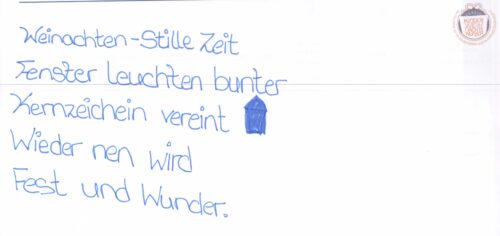 Weinachten-Stille Zeit
Fenster leuchten bunter
Kernzeichein vereint
Wieder nen wird
Fest und Wunder.